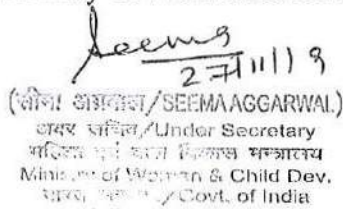 Seema
27/11/19
(सीमा अग्रवाल/SEEMA AGGARWAL)
अवर सचिव/Under Secretary
महिला एवं बाल विकास मन्त्रालय
Ministry of Women & Child Dev.
भारत /Govt. of India